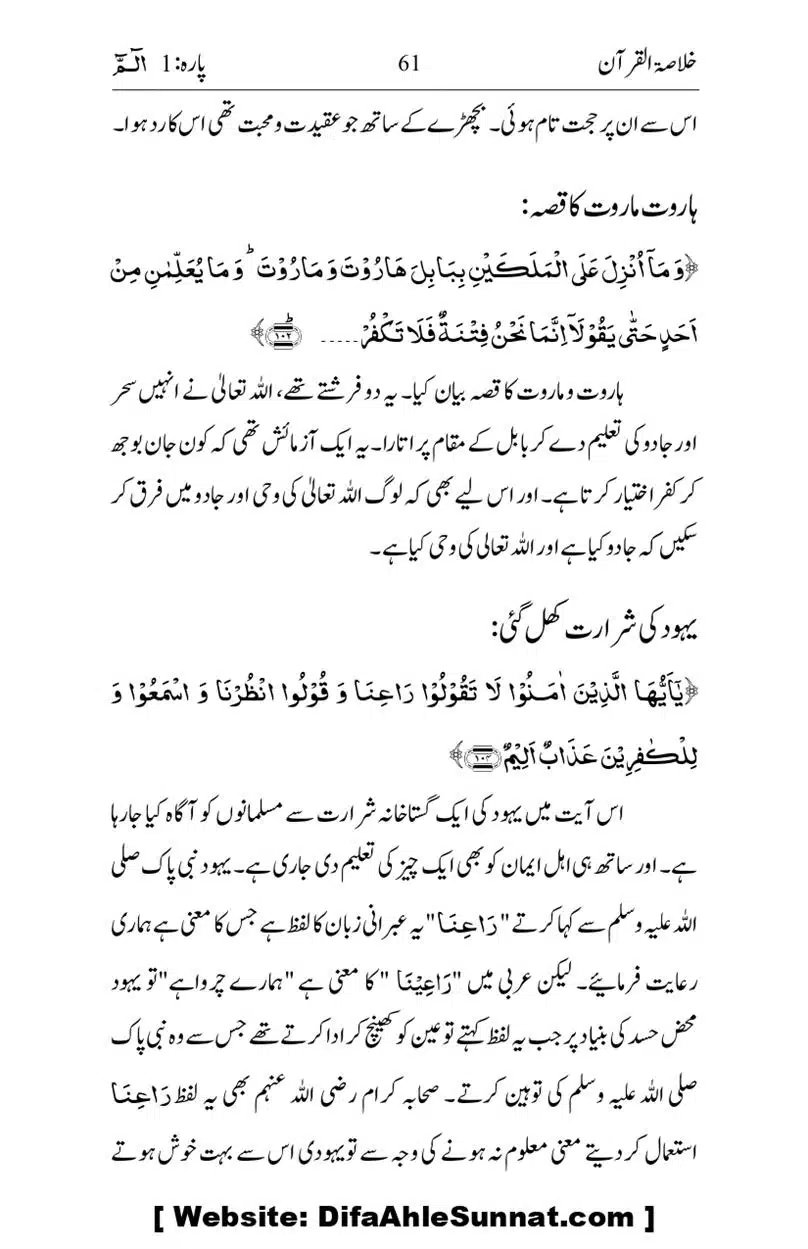 خلاصۃ القرآن 61 پارہ:1 الٓمّٓ
اس سے ان پر حجت تام ہوئی۔ بچھڑے کے ساتھ جو عقیدت و محبت تھی اس کا رد ہوا۔
ہاروت ماروت کا قصہ:
﴿وَ مَاۤ اُنْزِلَ عَلَی الْمَلَكَیْنِ بِبَابِلَ هَارُوْتَ وَ مَارُوْتَ ؕ وَ مَا یُعَلِّمٰنِ مِنْ
اَحَدٍ حَتّٰی یَقُوْلَاۤ اِنَّمَا نَحْنُ فِتْنَةٌ فَلَا تَكْفُرْ..... ﴿۱۰۲﴾ؕ﴾
ہاروت و ماروت کا قصہ بیان کیا۔ یہ دو فرشتے تھے، اللہ تعالیٰ نے انہیں سحر
اور جادو کی تعلیم دے کر بابل کے مقام پر اتارا۔ یہ ایک آزمائش تھی کہ کون جان بوجھ
کر کفر اختیار کرتا ہے۔ اور اس لیے بھی کہ لوگ اللہ تعالیٰ کی وحی اور جادو میں فرق کر
سکیں کہ جادو کیا ہے اور اللہ تعالی کی وحی کیا ہے۔
یہود کی شرارت کھل گئی:
﴿یٰۤاَیُّهَا الَّذِیْنَ اٰمَنُوْا لَا تَقُوْلُوْا رَاعِنَا وَ قُوْلُوا انْظُرْنَا وَ اسْمَعُوْا وَ
لِلْكٰفِرِیْنَ عَذَابٌ اَلِیْمٌ ﴿۱۰۴﴾﴾
اس آیت میں یہود کی ایک گستاخانہ شرارت سے مسلمانوں کو آگاہ کیا جارہا
ہے۔ اور ساتھ ہی اہل ایمان کو بھی ایک چیز کی تعلیم دی جاری ہے۔ یہود نبی پاک صلی
اللہ علیہ وسلم سے کہا کرتے "رَاعِنَا" یہ عبرانی زبان کا لفظ ہے جس کا معنی ہے ہماری
رعایت فرمائیے۔ لیکن عربی میں "رَاعِیْنَا" کا معنی ہے "ہمارے چرواہے" تو یہود
محض حسد کی بنیاد پر جب یہ لفظ کہتے تو عین کو کھینچ کر ادا کرتے تھے جس سے وہ نبی پاک
صلی اللہ علیہ وسلم کی توہین کرتے۔ صحابہ کرام رضی اللہ عنہم بھی یہ لفظ رَاعِنَا
استعمال کر دیتے معنی معلوم نہ ہونے کی وجہ سے تو یہودی اس سے بہت خوش ہوتے
[ Website: DifaAhleSunnat.com ]